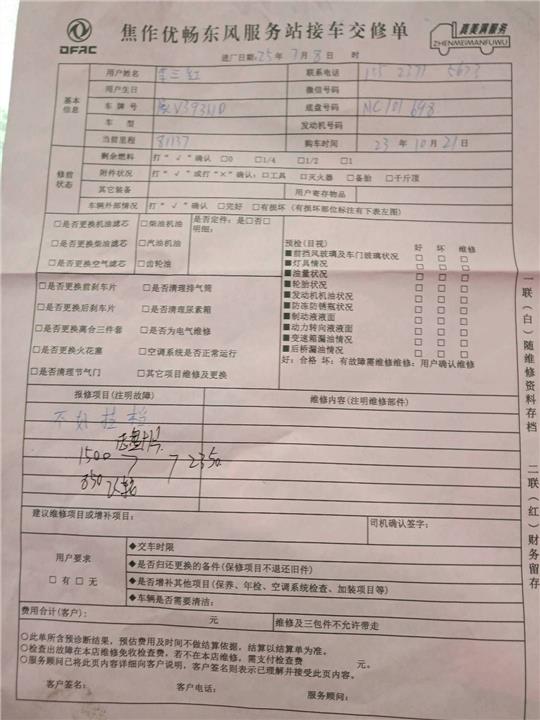 DFAC
焦作优畅东风服务站接车交修单
真美满服务
ZHENMEIMANFUWU
进厂日期: 25年 7月 8日 时
基本信息
用户姓名 李三红 联系电话
用户生日 微信号码
车牌号 底盘号码 NC101
车型 发动机号码
当前里程 81137 购车时间 23年10月21日
修前状态
剩余燃料 打“√”确认 □0 □1/4 □1/2 □1
附件状况 打“√”或打“×”确认: □工具 □灭火器 □备胎 □千斤顶
其它装备 用户寄存物品
车辆外部情况 打“√”确认 □完好 □有损坏 (有损坏部位标注有下表左图)
□是否更换机油滤芯 □柴油机油 是否定件: 是□否□
明细:
□是否更换柴油滤芯 □汽油机油
□是否更换空气滤芯 □齿轮油
□是否更换前刹车片 □是否清理排气筒
□是否更换后刹车片 □是否清理尿素箱
□是否更换离合三件套 □是否为电气维修
□是否更换火花塞 □空调系统是否正常运行
□是否清理节气门 □其它项目维修及更换
预检(目视) 好 坏 维修
■前挡风玻璃及车门玻璃状况 □ □ □
■灯具情况 □ □ □
■油量状况 □ □ □
■轮胎状况 □ □ □
■发动机机油状况 □ □ □
■防冻防锈瓶状况 □ □ □
■制动液液面 □ □ □
■动力转向液液面 □ □ □
■变速箱漏油情况 □ □ □
■后桥漏油情况 □ □ □
好: 合格 坏: 有故障需维修维修: 用户确认维修
报修项目(注明故障) 维修内容(注明维修部件)
不好挂档
1500
2350
850
建议维修项目或增补项目: 司机确认签字:
用户要求
□有 □无
◆交车时限
◆是否归还更换的备件(保修项目不退还旧件)
◆是否增补其他项目(保养、年检、空调系统检查、加装项目等)
◆车辆是否需要清洁:
费用合计(客户): 元 维修及三包件不允许带走
○此单所含预诊断结果，预估费用及时间不做结算依据，结算以结算单为准。
○检查出故障在本店维修免收检查费，若不在本店维修，需支付检查费 元。
○服务顾问已将此页内容详细向客户说明，客户签名则表示已理解并接受此页内容。
客户签名: 客户电话: 服务顾问:
一联(白)随维修资料存档 二联(红)财务留存